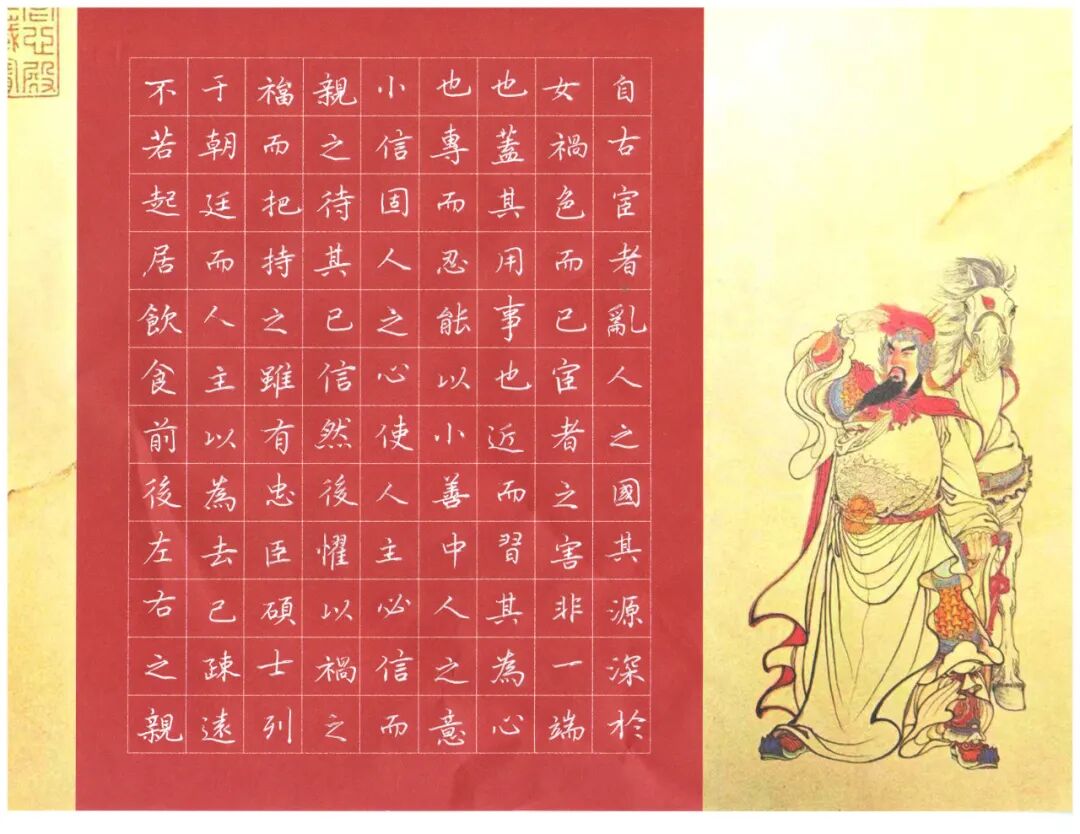 自古宦者亂人之國其源深於
女禍色而已宦者之害非一端
也蓋其用事也近而習其為心
也專而忍能以小善中人之意
小信固人之心使人主必信而
親之待其已信然後懼以禍之
福而把持之雖有忠臣碩士列
于朝廷而人主以為去己疎遠
不若起居飲食前後左右之親